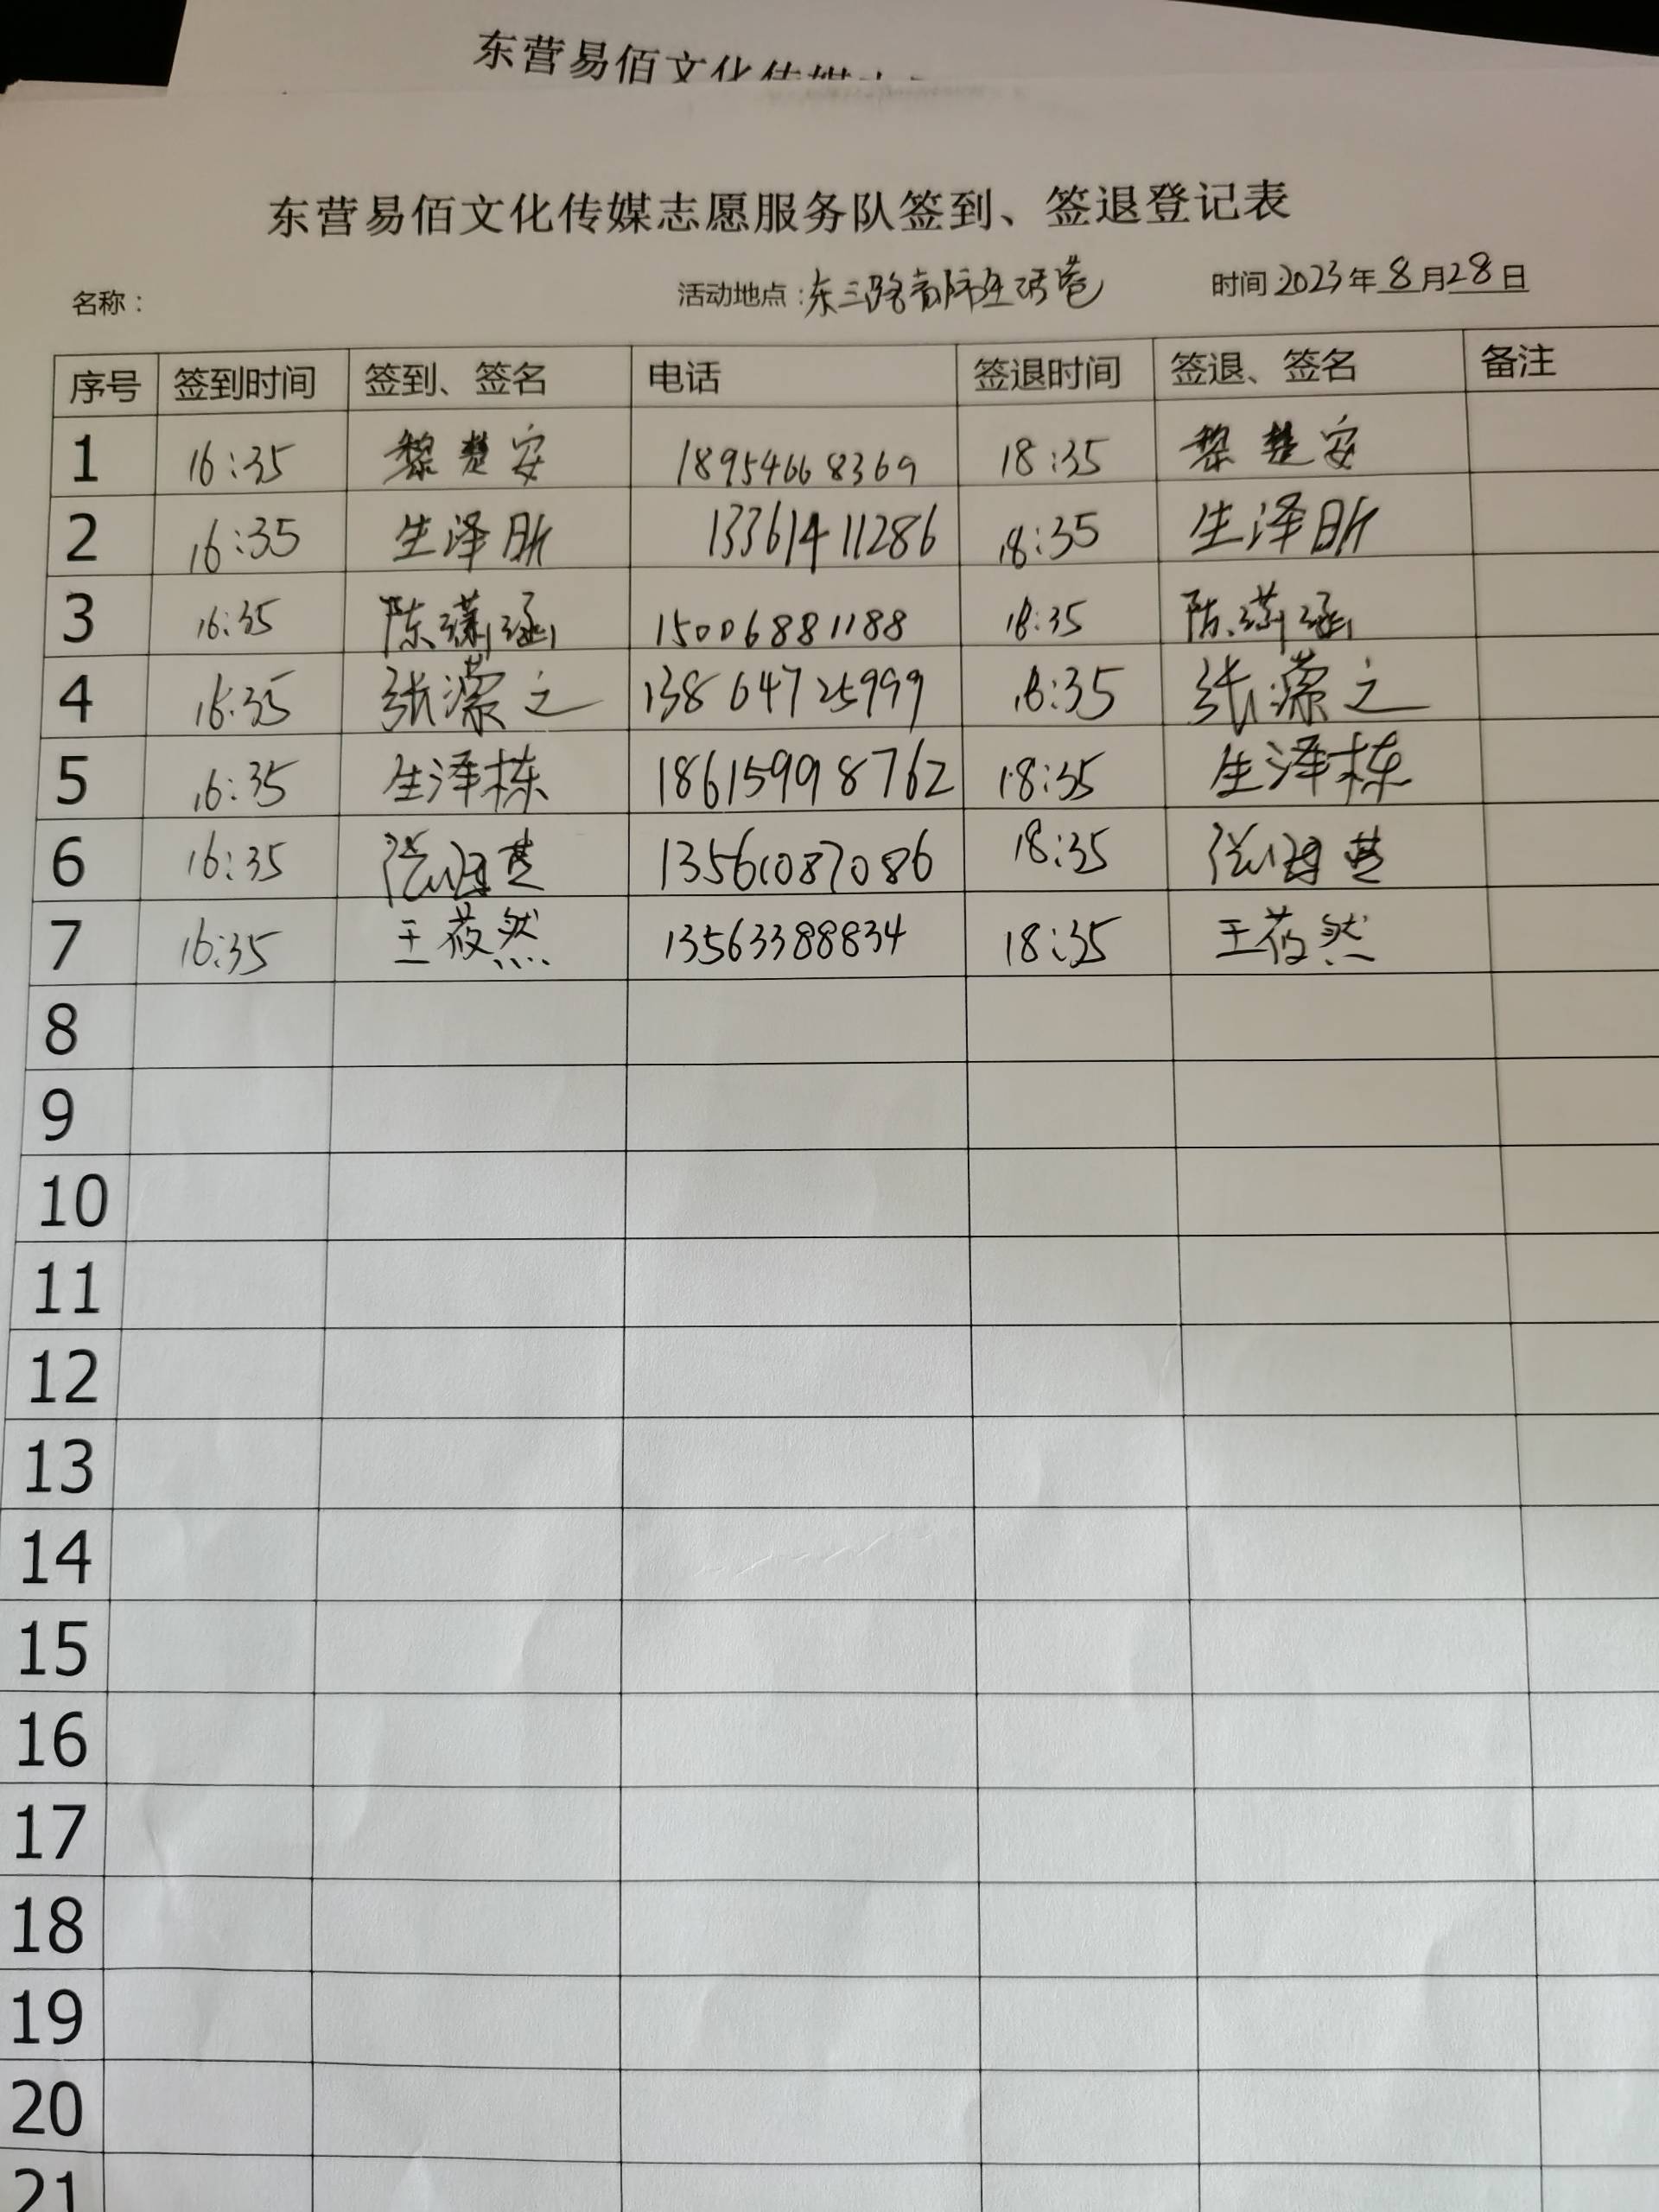 东营易佰文化传媒
东营易佰文化传媒志愿服务队签到、签退登记表
名称： 活动地点：东三路都市生活苑 时间 2023年8月28日
序号 签到时间 签到、签名 电话 签退时间 签退、签名 备注
1 16:35 黎楚安 18954668369 18:35 黎楚安
2 16:35 生泽昕 13361411286 18:35 生泽昕
3 16:35 陈潇涵 15006881188 18:35 陈潇涵
4 16:35 张濛之 13864725999 18:35 张濛之
5 16:35 生泽栋 18615998762 18:35 生泽栋
6 16:35 13561087086 18:35
7 16:35 王莜然 13563388834 18:35 王莜然
8
9
10
11
12
13
14
15
16
17
18
19
20
21